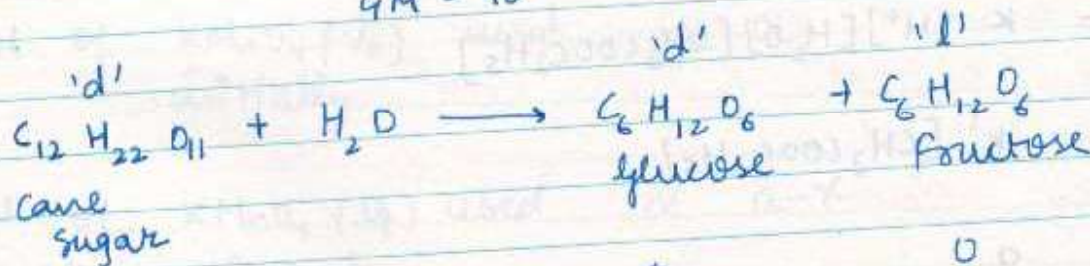 'd' 'd' 'l'
C₁₂ H₂₂ O₁₁ + H₂O ⟶ C₆ H₁₂ O₆ + C₆ H₁₂ O₆
cane glucose fructose
sugar